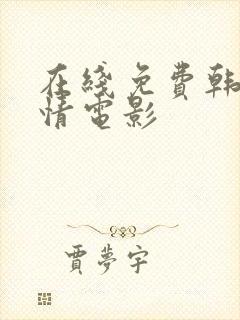 在綫免費韩
情電影
賈夢宇